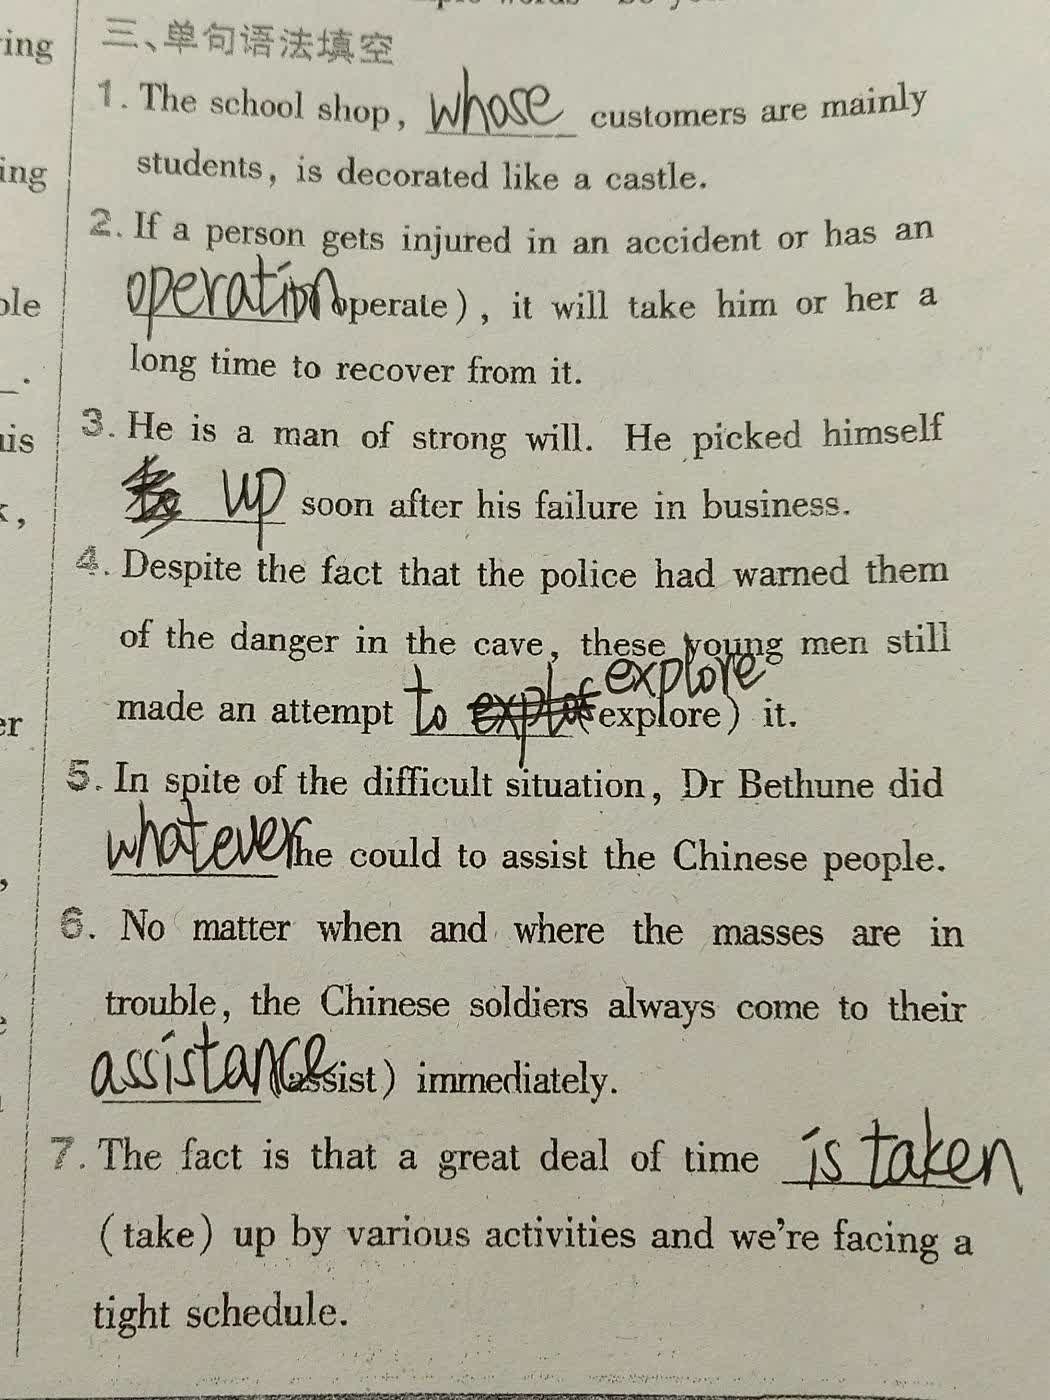 三、单句语法填空
ring
1. The school shop, whose customers are mainly
students, is decorated like a castle.
ing
2. If a person gets injured in an accident or has an
operation (operate), it will take him or her a
ole
long time to recover from it.
3. He is a man of strong will. He picked himself
up soon after his failure in business.
4. Despite the fact that the police had warned them
of the danger in the cave, these young men still
explore
made an attempt to (explore) it.
er
5. In spite of the difficult situation, Dr Bethune did
whatever he could to assist the Chinese people.
6. No matter when and where the masses are in
trouble, the Chinese soldiers always come to their
assistance (assist) immediately.
7. The fact is that a great deal of time is taken
(take) up by various activities and we're facing a
tight schedule.